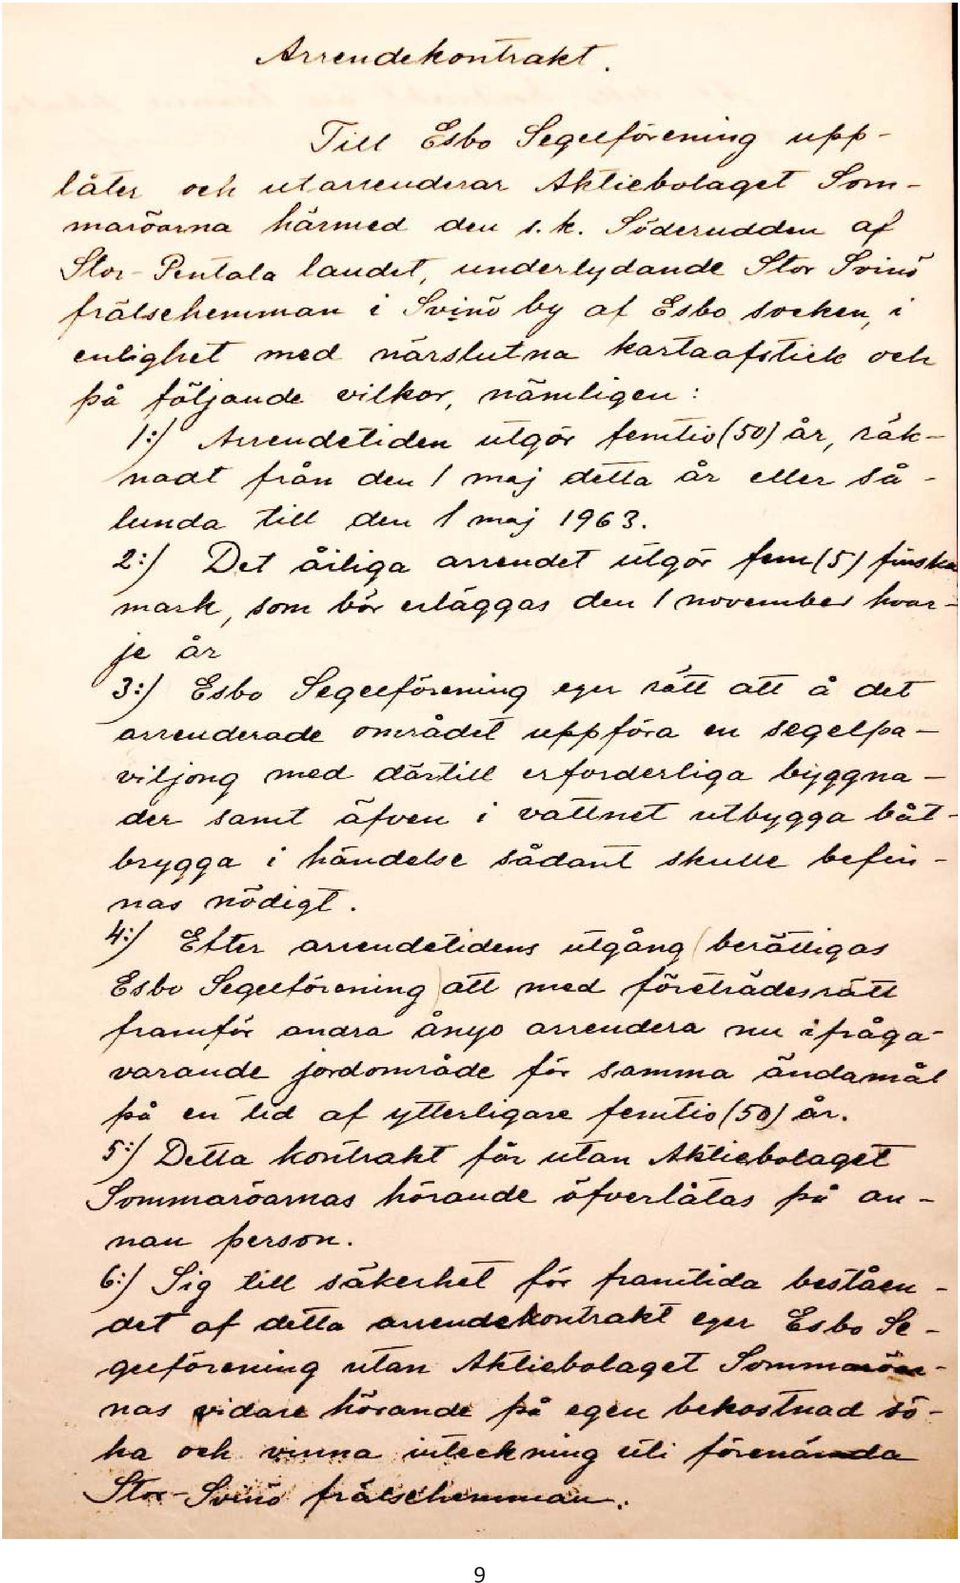 Arrendekontrakt.
Till Esbo Segelförening upp-
låter och utarrenderar Aktiebolaget Som-
maröarna härmed den s.k. Söderudden af
Stor-Pentala landet, underlydande Stor Svinö
frälsehemman i Svinö by af Esbo socken, i
enlighet med närslutna kartaafstick och
på följande vilkor, nämligen:
1:/ Arrendetiden utgör femtio (50) år, räk-
nadt från den 1 maj detta år eller så-
lunda till den 1 maj 1963.
2:/ Det årliga arrendet utgör fem (5) finska
mark, som bör erläggas den 1 november hvar-
je år
3:/ Esbo Segelförening eger rätt att å det
arrenderade området uppföra en segelpa-
viljong med därtill erforderliga byggna-
der samt äfven i vattnet utbygga båt-
brygga i händelse sådant skulle befin-
nas nödigt.
4:/ Efter arrendetidens utgång (berättigas
Esbo Segelförening) att med företrädesrätt
framför andra ånyo arrendera nu ifråga-
varande jordområde för samma ändamål
på en tid af ytterligare femtio (50) år.
5:/ Detta kontrakt får utan Aktiebolaget
Sommaröarnas hörande öfverlåtas på an-
nan person.
6:/ Sig till säkerhet för framtida bestäen-
det af detta arrendekontrakt eger Esbo Se-
gelförening utan Aktiebolaget Sommaröar-
nas vidare hörande på egen bekostnad sö-
ka och vinna inteckning uti förenämnda
Stor-Svinö frälsehemman.
9